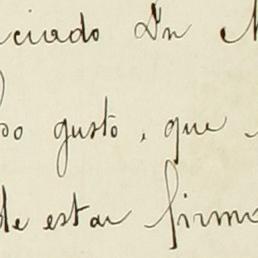 ciado Dn
do gusto, que
de estar firm